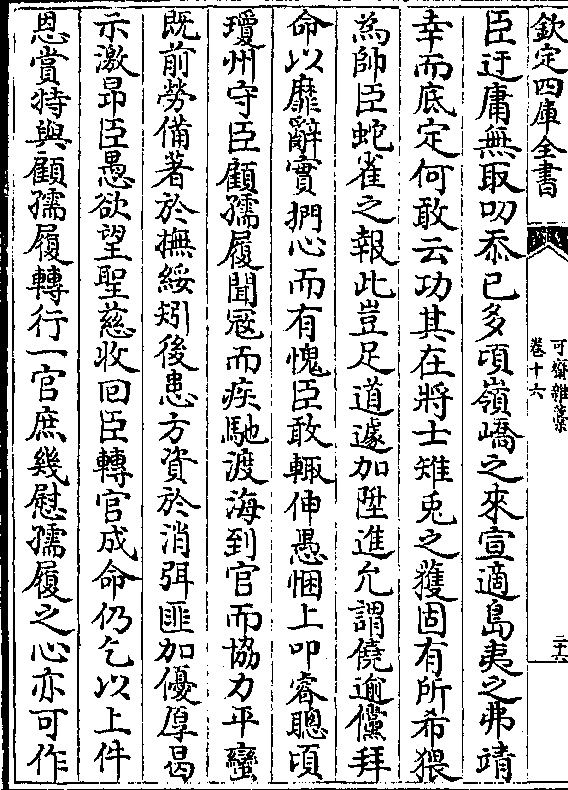 欽定四庫全書
可齋雜藁
卷十六
二十六
臣迂庸無取叨忝已多頃嶺嶠之來宣適島夷之弗靖
幸而底定何敢云功其在將士雉兎之獲固有所希猥
為帥臣蛇雀之報此豈足道遽加陞進允謂僥逾儻拜
命以靡辭實捫心而有愧臣敢輒伸愚悃上叩睿聰頃
瓊州守臣顧孺履聞冦而疾馳渡海到官而協力平蠻
既前勞備著於撫綏矧後患方資於消弭匪加優厚曷
示激昻臣愚欲望聖慈收回臣轉官成命仍乞以上件
恩賞特與顧孺履轉行一官庶幾慰孺履之心亦可作